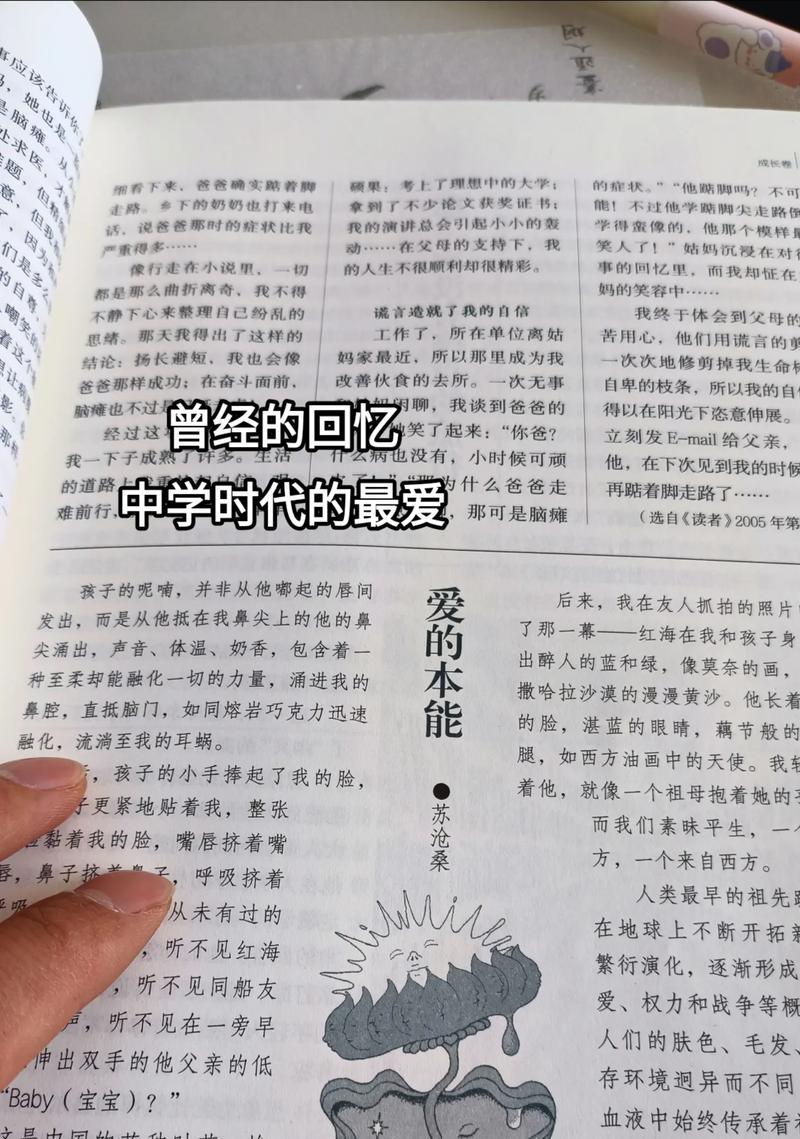 成长卷
事应该告诉你
吗，她也是一
是脑瘫。从
处求医，才
难题，但精
意，但我
了，因为
们是多么
的自尊
嘲笑的
细看下来，爸爸确实踮着脚
走路。乡下的奶奶也打来电
话，说爸爸那时的症状比我
严重得多……
像行走在小说里，一切
都是那么曲折离奇，我不得
不静下心来整理自己纷乱的
思绪。那天我得出了这样的
结论：扬长避短，我也会像
爸爸那样成功；在奋斗面前，
脑瘫也不过是
经过这
我一下子成熟了许多。生活
的道路上
难前行，
硕果：考上了理想中的大学；
拿到了不少论文获奖证书；
我的演讲总会引起小小的轰
动……在父母的支持下，我
的人生不很顺利却很精彩。
谎言造就了我的自信
工作了，所在单位离姑
妈家最近，所以那里成为我
改善伙食的去所。一次无事
妈闲聊，我谈到爸爸的
她笑了起来：“你爸？
什么病也没有，小时候可顽
“那为什么爸爸走
，那可是脑瘫
的症状。”“他踮脚吗？不可
能！不过他学踮脚尖走路倒
学得蛮像的，他那个模样最
笑人了！”姑妈沉浸在对往
事的回忆里，而我却怔在
妈的笑容中……
我终于体会到父母的
苦用心，他们用谎言的剪
一次次地修剪掉我生命
自卑的枝条，所以我的自
得以在阳光下恣意伸展。
立刻发 E-mail 给父亲，
他，在下次见到我的时候
再踮着脚走路了……
（选自《读者》2005 年第
曾经的回忆
中学时代的最爱
爱的本能
●苏沧桑
孩子的呢喃，并非从他嘟起的唇间
发出，而是从他抵在我鼻尖上的他的鼻
尖涌出，声音、体温、奶香，包含着一
种至柔却能融化一切的力量，涌进我的
鼻腔，直抵脑门，如同熔岩巧克力迅速
融化，流淌至我的耳蜗。
，孩子的小手捧起了我的脸，
子更紧地贴着我，整张
脸黏着我的脸，嘴唇挤着嘴
唇，鼻子挤着鼻子，呼吸挤着
呼吸
从未有过的
，听不见红海
，听不见同船友
声，听不见在一旁早
伸出双手的他父亲的低
“Baby（宝宝）？”
后来，我在友人抓拍的照片
了那一幕——红海在我和孩子身
出醉人的蓝和绿，像莫奈的画，
撒哈拉沙漠的漫漫黄沙。他长着
的脸，湛蓝的眼睛，藕节般的
腿，如西方油画中的天使。我轻
着他，就像一个祖母抱着她的
而我们素昧平生，一个
方，一个来自西方。
人类最早的祖先
在地球上不断开拓新
繁衍演化，逐渐形成
爱、权力和战争等概
人们的肤色、毛发、
存环境迥异而不同
血液中始终传承着